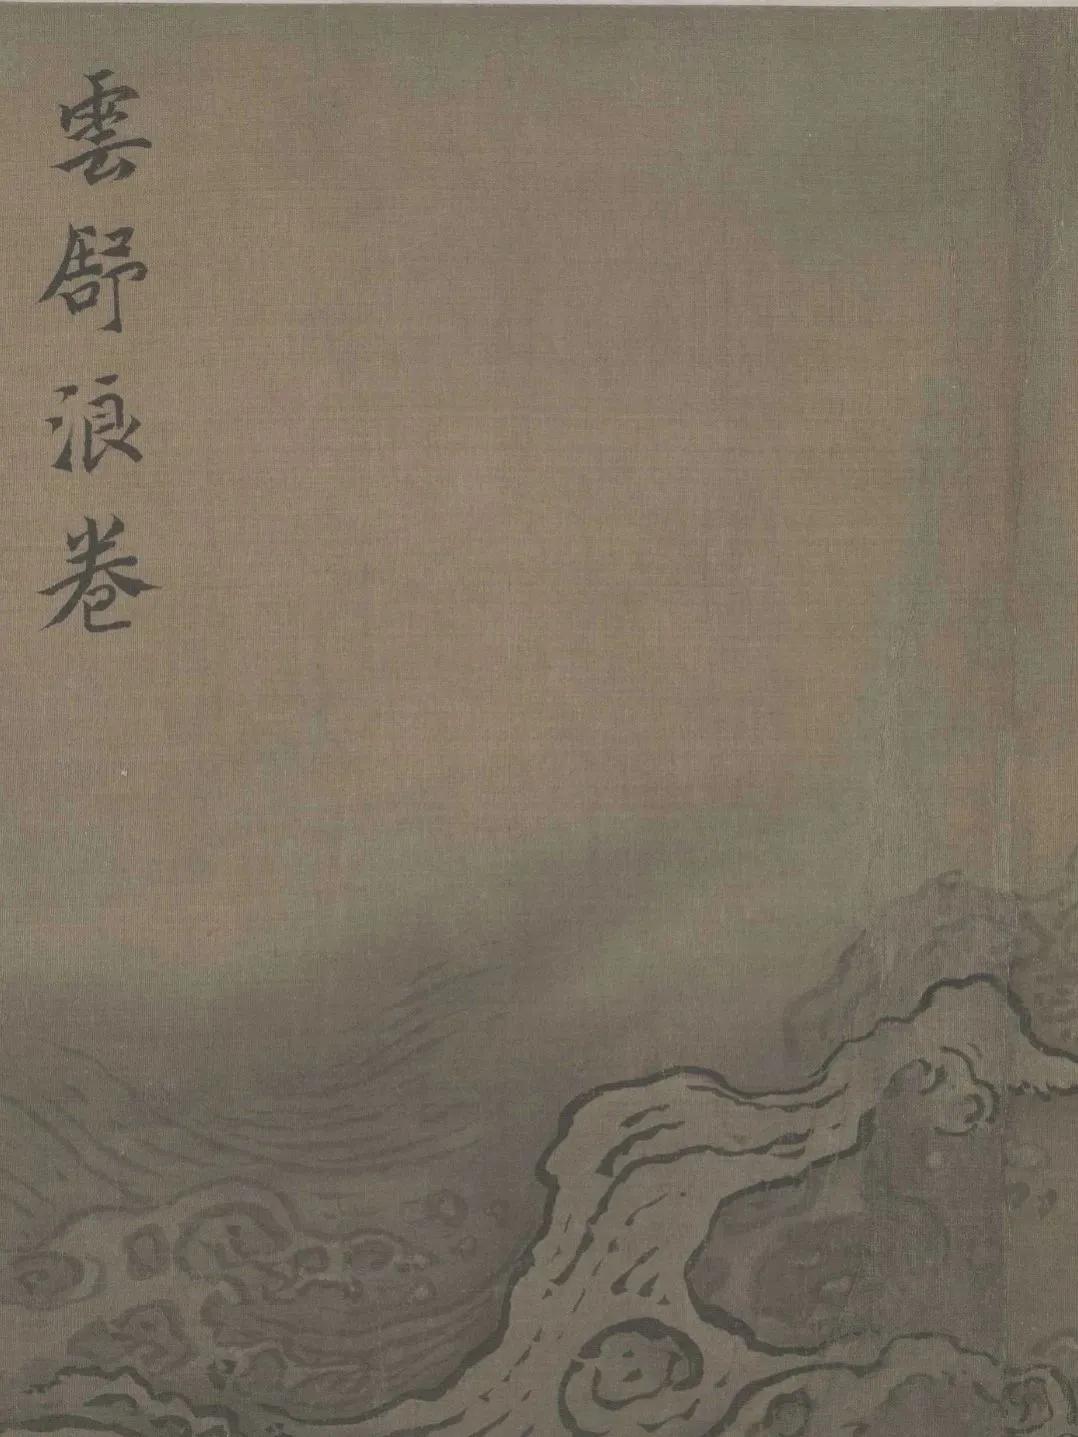 雲舒浪卷